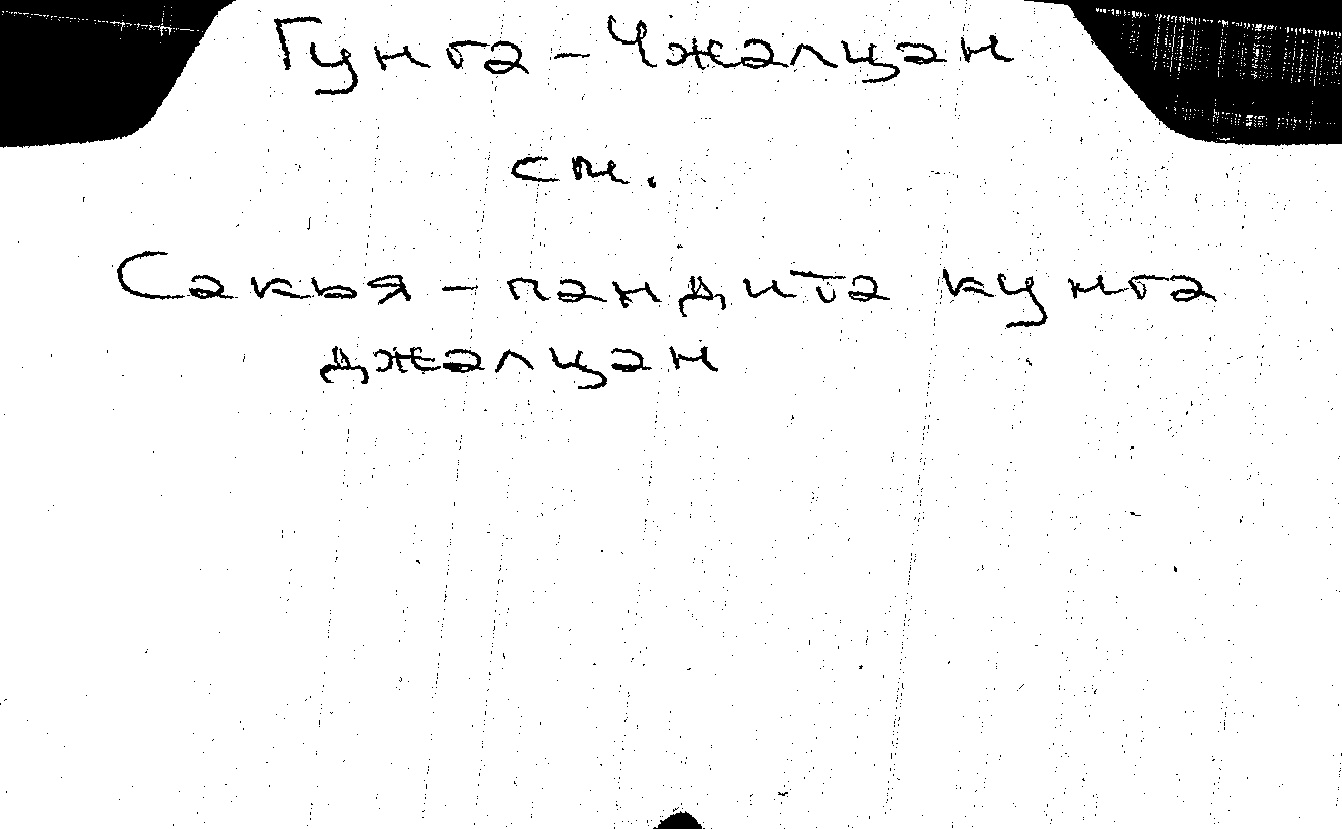 Гунга-Чжалцан
см.
Сакья-пандита кунга
джалцан